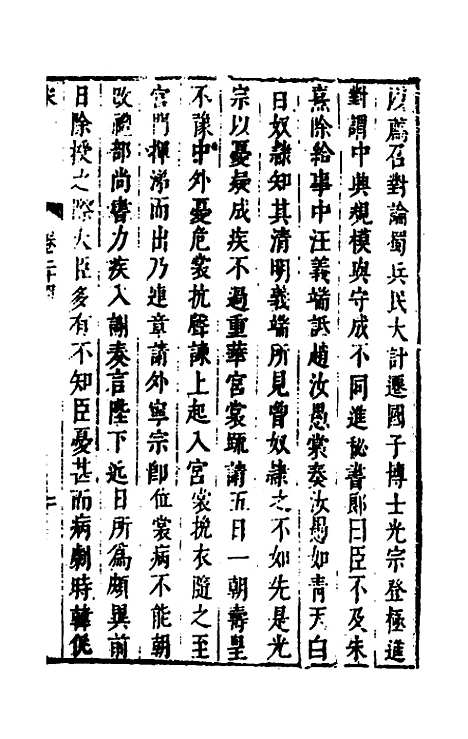 以薦召對論蜀兵民大計遷國子博士光宗登極進
對謂中興規模與守成不同進祕書郎曰臣不及朱
熹除給事中汪義端詆趙汝愚裳奏汝愚如青天白
日奴隸知其清明義端所見曾奴隸之不如先是光
宗以憂疑成疾不過重華宮裳疏請五日一朝壽皇
不豫中外憂危裳抗聲諫上起入宮裳挽衣隨之至
宮門揮涕而出乃連章請外寧宗卽位裳病不能朝
改禮部尚書力疾入謝奏言陛下近日所爲頗異前
日除授之際大臣多有不知臣憂甚而病劇時韓侂
卷二十